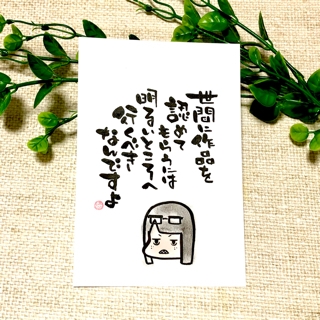 世間に作品を
認めて
もらうには
明るいところへ
行くべき
なんですよ